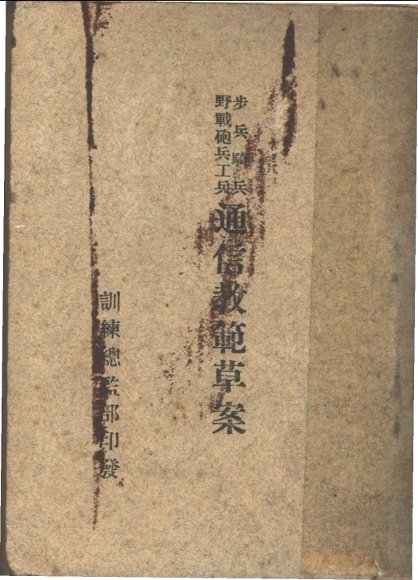 步兵騎兵
野戰砲兵工兵
通信教範草案
訓練總監部印發